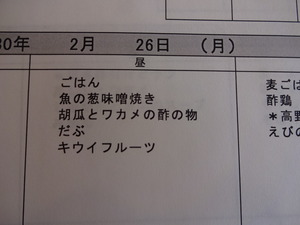 30年　2月　26日　（月）
昼
ごはん
魚の葱味噌焼き
胡瓜とワカメの酢の物
だぶ
キウイフルーツ
麦ごは
酢鶏
＊高野
えびの